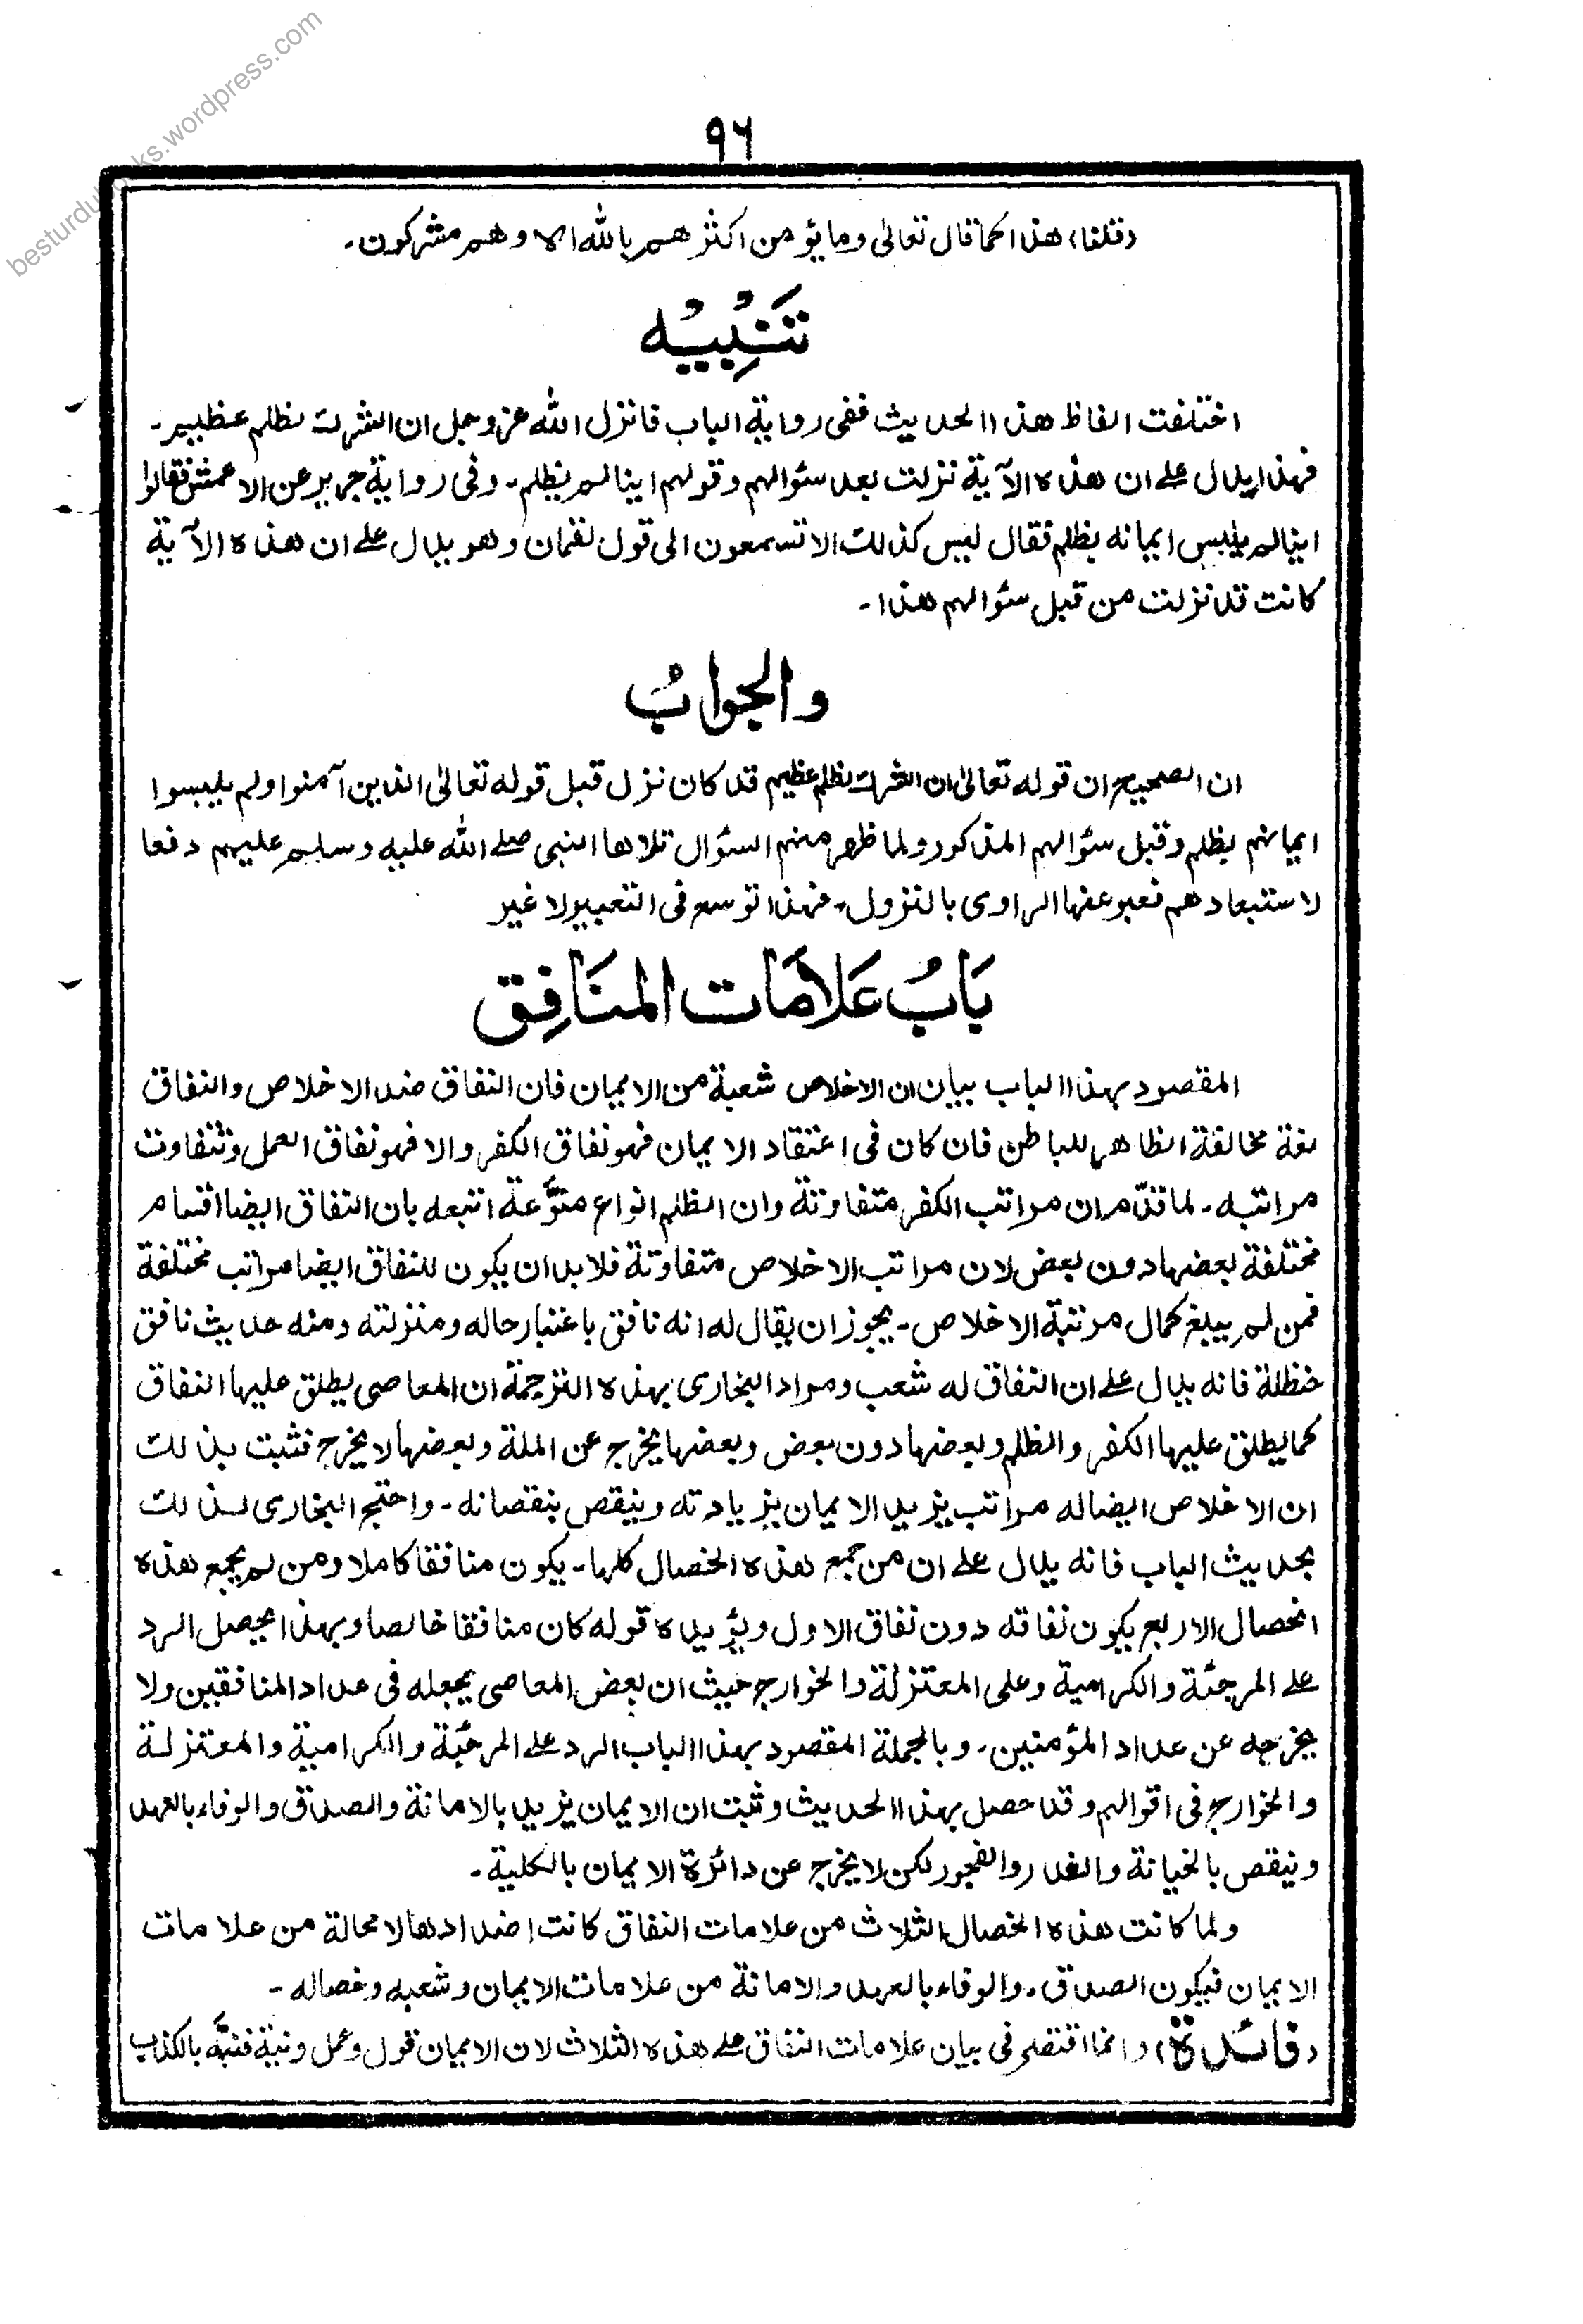 besturdubooks.wordpress.com
۹۶
(قلنا) هذا كما قال تعالى وما يؤمن اكثرهم بالله الا وهم مشركون۔
تَنْبِيْه
اختلفت الفاظ هذا الحديث ففى رواية الباب فانزل الله عز وجل ان الشرك لظلم عظيم۔
فهذا يدل على ان هذه الآية نزلت بعد سئوالهم وقولهم اينا لم يظلم۔ وفى رواية جرير عن الاعمش فقالوا
اينا لم يلبس ايمانه بظلم فقال ليس كذلك الا تسمعون الى قول لقمان وهو يدل على ان هذه الآية
كانت قد نزلت من قبل سئوالهم هذا۔
والجوابُ
ان الصحيح ان قوله تعالىٰ ان الشرك لظلم عظيم قد كان نزل قبل قوله تعالىٰ الذين آمنوا ولم يلبسوا
ايمانهم بظلم وقبل سئوالهم المذكور ولما ظهر منهم السئوال تلاها النبى صلى الله عليه وسلم عليهم دفعا
لاستبعادهم فعبر عنها الراوى بالنزول۔ فهذا توسع فى التعبير لا غير
بَابُ عَلَامَات المنَافِق
المقصود بهذا الباب بيان ان الاخلاص شعبة من الايمان فان النفاق ضد الاخلاص والنفاق
لغة مخالفة الظاهر للباطن فان كان فى اعتقاد الايمان فهو نفاق الكفر والا فهو نفاق العمل وتتفاوت
مراتبه۔ لما قدّم ان مراتب الكفر متفاوتة وان الظلم انواع متنوّعة اتبعه بان النفاق ايضا اقسام
مختلفة بعضها دون بعض لان مراتب الاخلاص متفاوتة فلا بد ان يكون للنفاق ايضا مراتب مختلفة
فمن لم يبلغ كمال مرتبة الاخلاص۔ يجوز ان يقال له انه نافق باعتبار حاله ومنزلته ومنه حديث نافق
حنظلة فانه يدل على ان النفاق له شعب ومراد البخارى بهذه الترجمة ان المعاصى يطلق عليها النفاق
كما يطلق عليها الكفر والظلم وبعضها دون بعض وبعضها يخرج عن الملة وبعضها لا يخرج فثبت بذلك
ان الاخلاص ايضا له مراتب يزيد الايمان بزيادته وينقص بنقصانه۔ واحتج البخارى لذلك
بحديث الباب فانه يدل على ان من جمع هذه الخصال كلها۔ يكون منافقا كاملا ومن لم يجمع هذه
الخصال الاربع يكون نفاقه دون نفاق الاول ويؤيده قوله كان منافقا خالصا وبهذا يحصل الرد
على المرجئة والكرامية وعلى المعتزلة والخوارج حيث ان بعض المعاصى يجعله فى عداد المنافقين ولا
يخرجه عن عداد المؤمنين۔ وبالجملة المقصود بهذا الباب الرد على المرجئة والكرامية والمعتزلة
والخوارج فى اقوالهم وقد حصل بهذا الحديث وثبت ان الايمان يزيد بالامانة والصدق والوفاء بالعهد
وينقص بالخيانة والغدر والفجور لكن لا يخرج عن دائرة الايمان بالكلية۔
ولما كانت هذه الخصال الثلاث من علامات النفاق كانت اضدادها لا محالة من علامات
الايمان فيكون الصدق۔ والوفاء بالعهد والامانة من علامات الايمان وشعبه وخصاله۔
(فائدة) وانما اقتصر فى بيان علامات النفاق على هذه الثلاث لان الايمان قول وعمل ونية فنبّه بالكذب